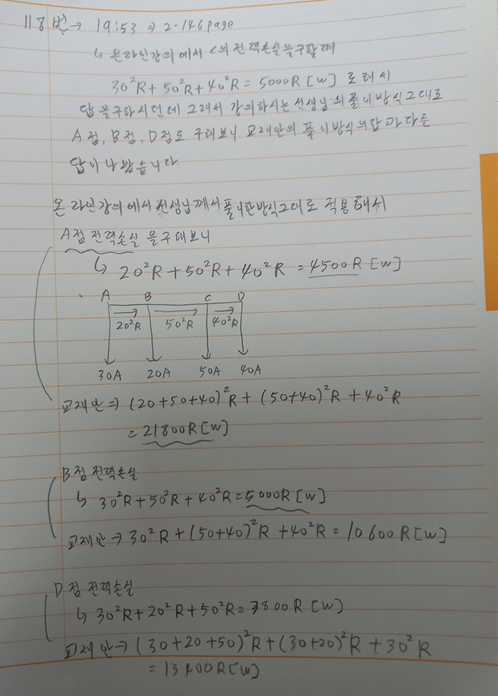 118번 → 19:53 ⇒ 2-146page
↳ 온라인강의에서 C의 전력손실을 구할때
30²R + 50²R + 40²R = 5000R [W] 로 해서
답을 구하시던데 그래서 강의하시는 선생님의 풀이방식 그대로
A점, B점, D점도 구해보니 교재안의 풀이방식의 답과 다른
답이 나왔습니다
온라인강의에서 선생님께서 풀이한 방식 그대로 적용해서
A점 전력손실을 구해보니
↳ 20²R + 50²R + 40²R = 4500R [W]
A B C D
20²R 50²R 40²R
30A 20A 50A 40A
교재안 ⇒ (20+50+40)²R + (50+40)²R + 40²R
= 21800R [W]
B점 전력손실
↳ 30²R + 50²R + 40²R = 5000R [W]
교재안 → 30²R + (50+40)²R + 40²R = 10600R [W]
D점 전력손실
↳ 30²R + 20²R + 50²R = 3800R [W]
교재안 → (30+20+50)²R + (30+20)²R + 30²R
= 13400R [W]